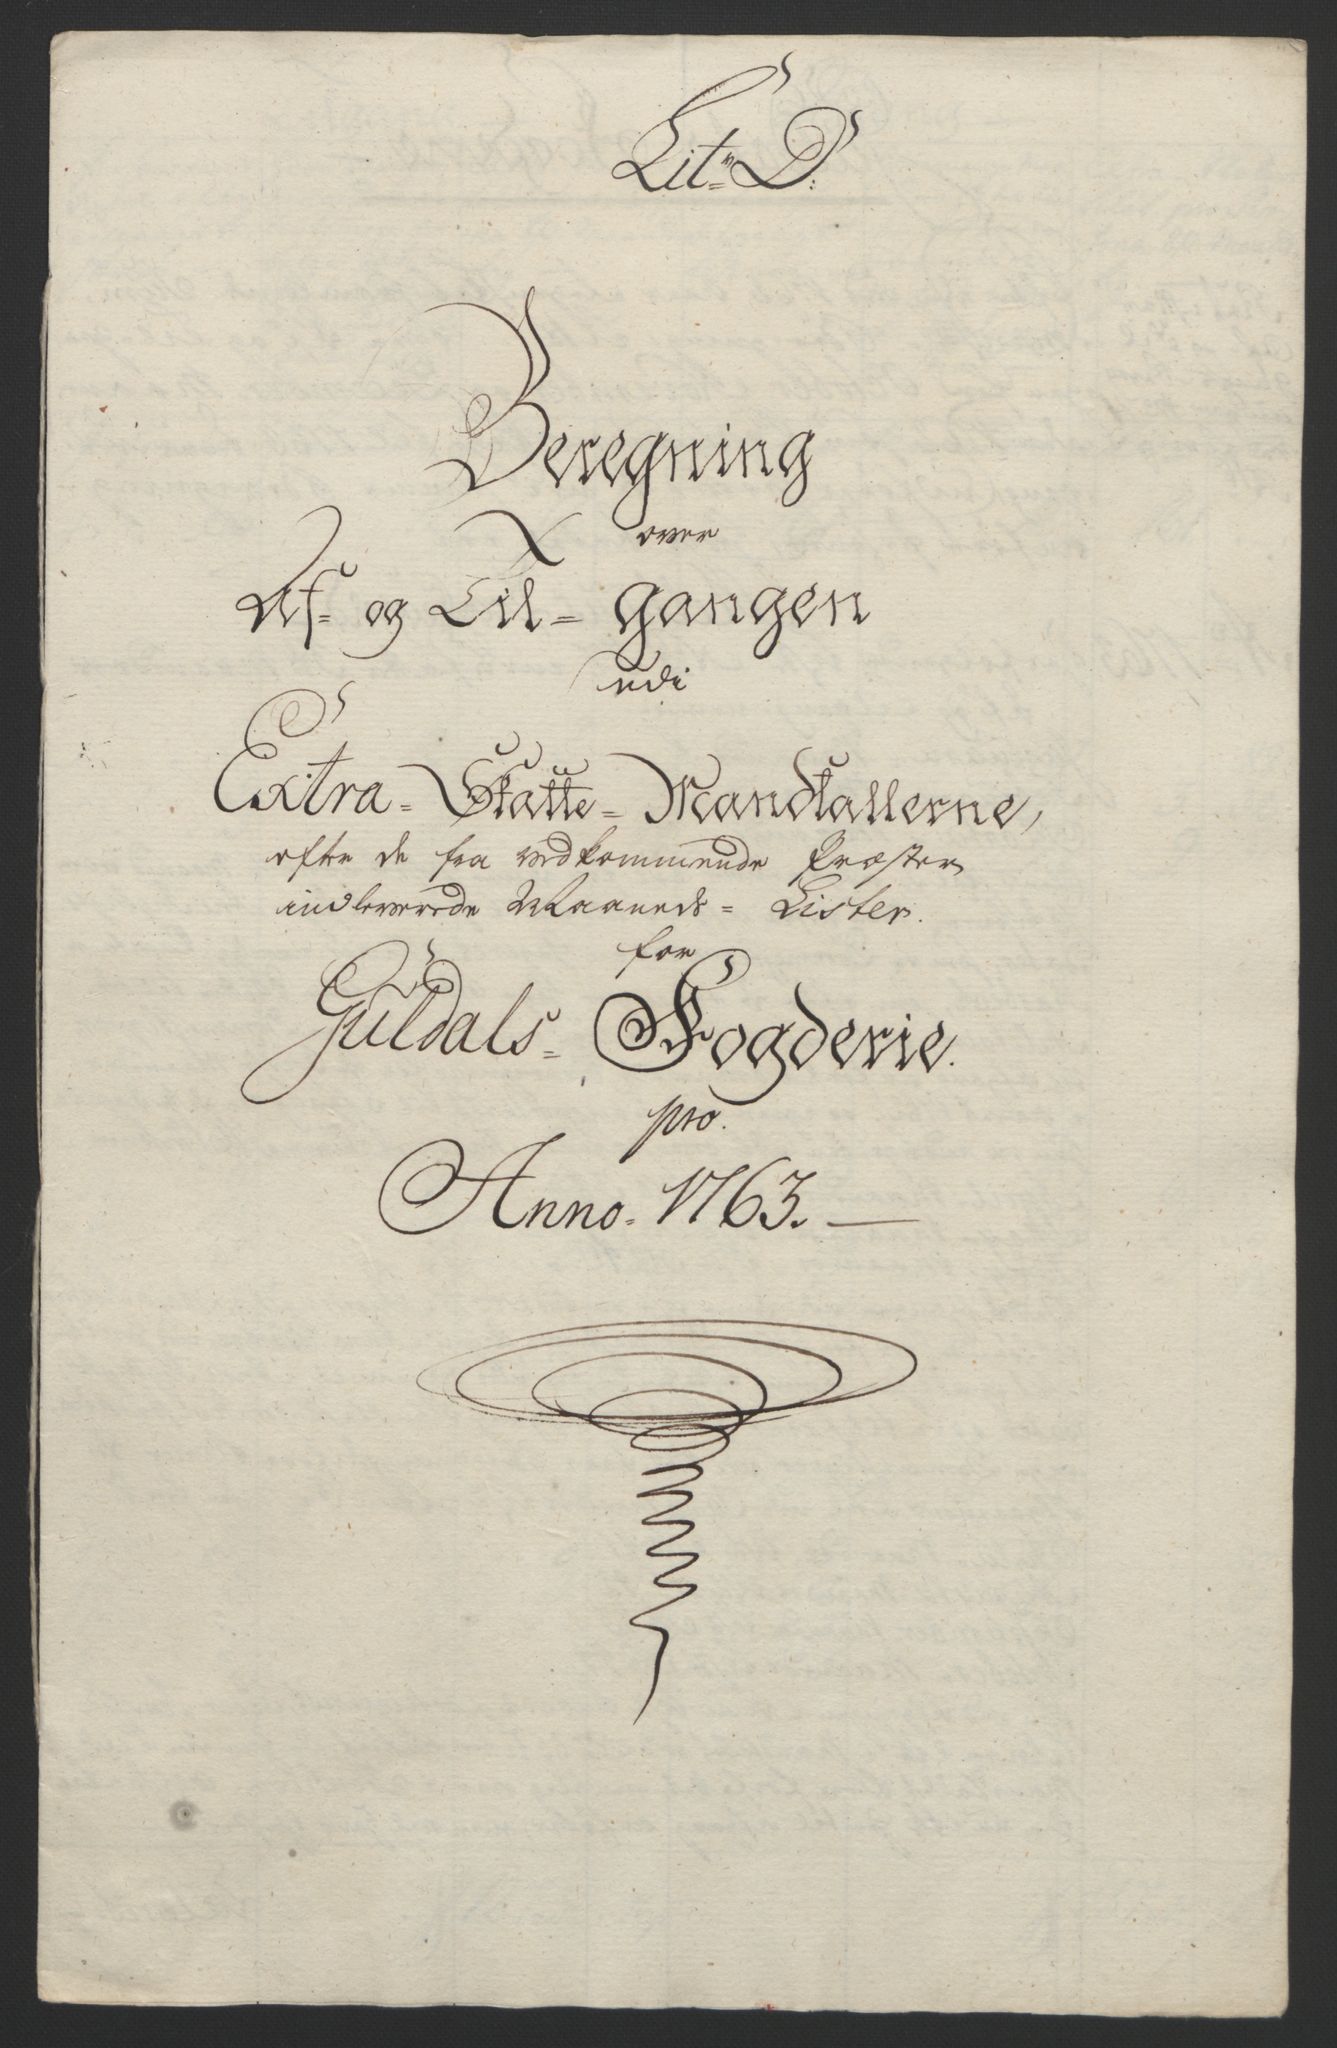 Lit: D:
Beregning
over
Af- og Til- gangen
udi
Extra- Skatte- Mandtallerne,
efter de fra vedkommende Præster
indleverede Maaneds- Lister.
for
Guldals- Fogderie.
pro.
Anno. 1763.